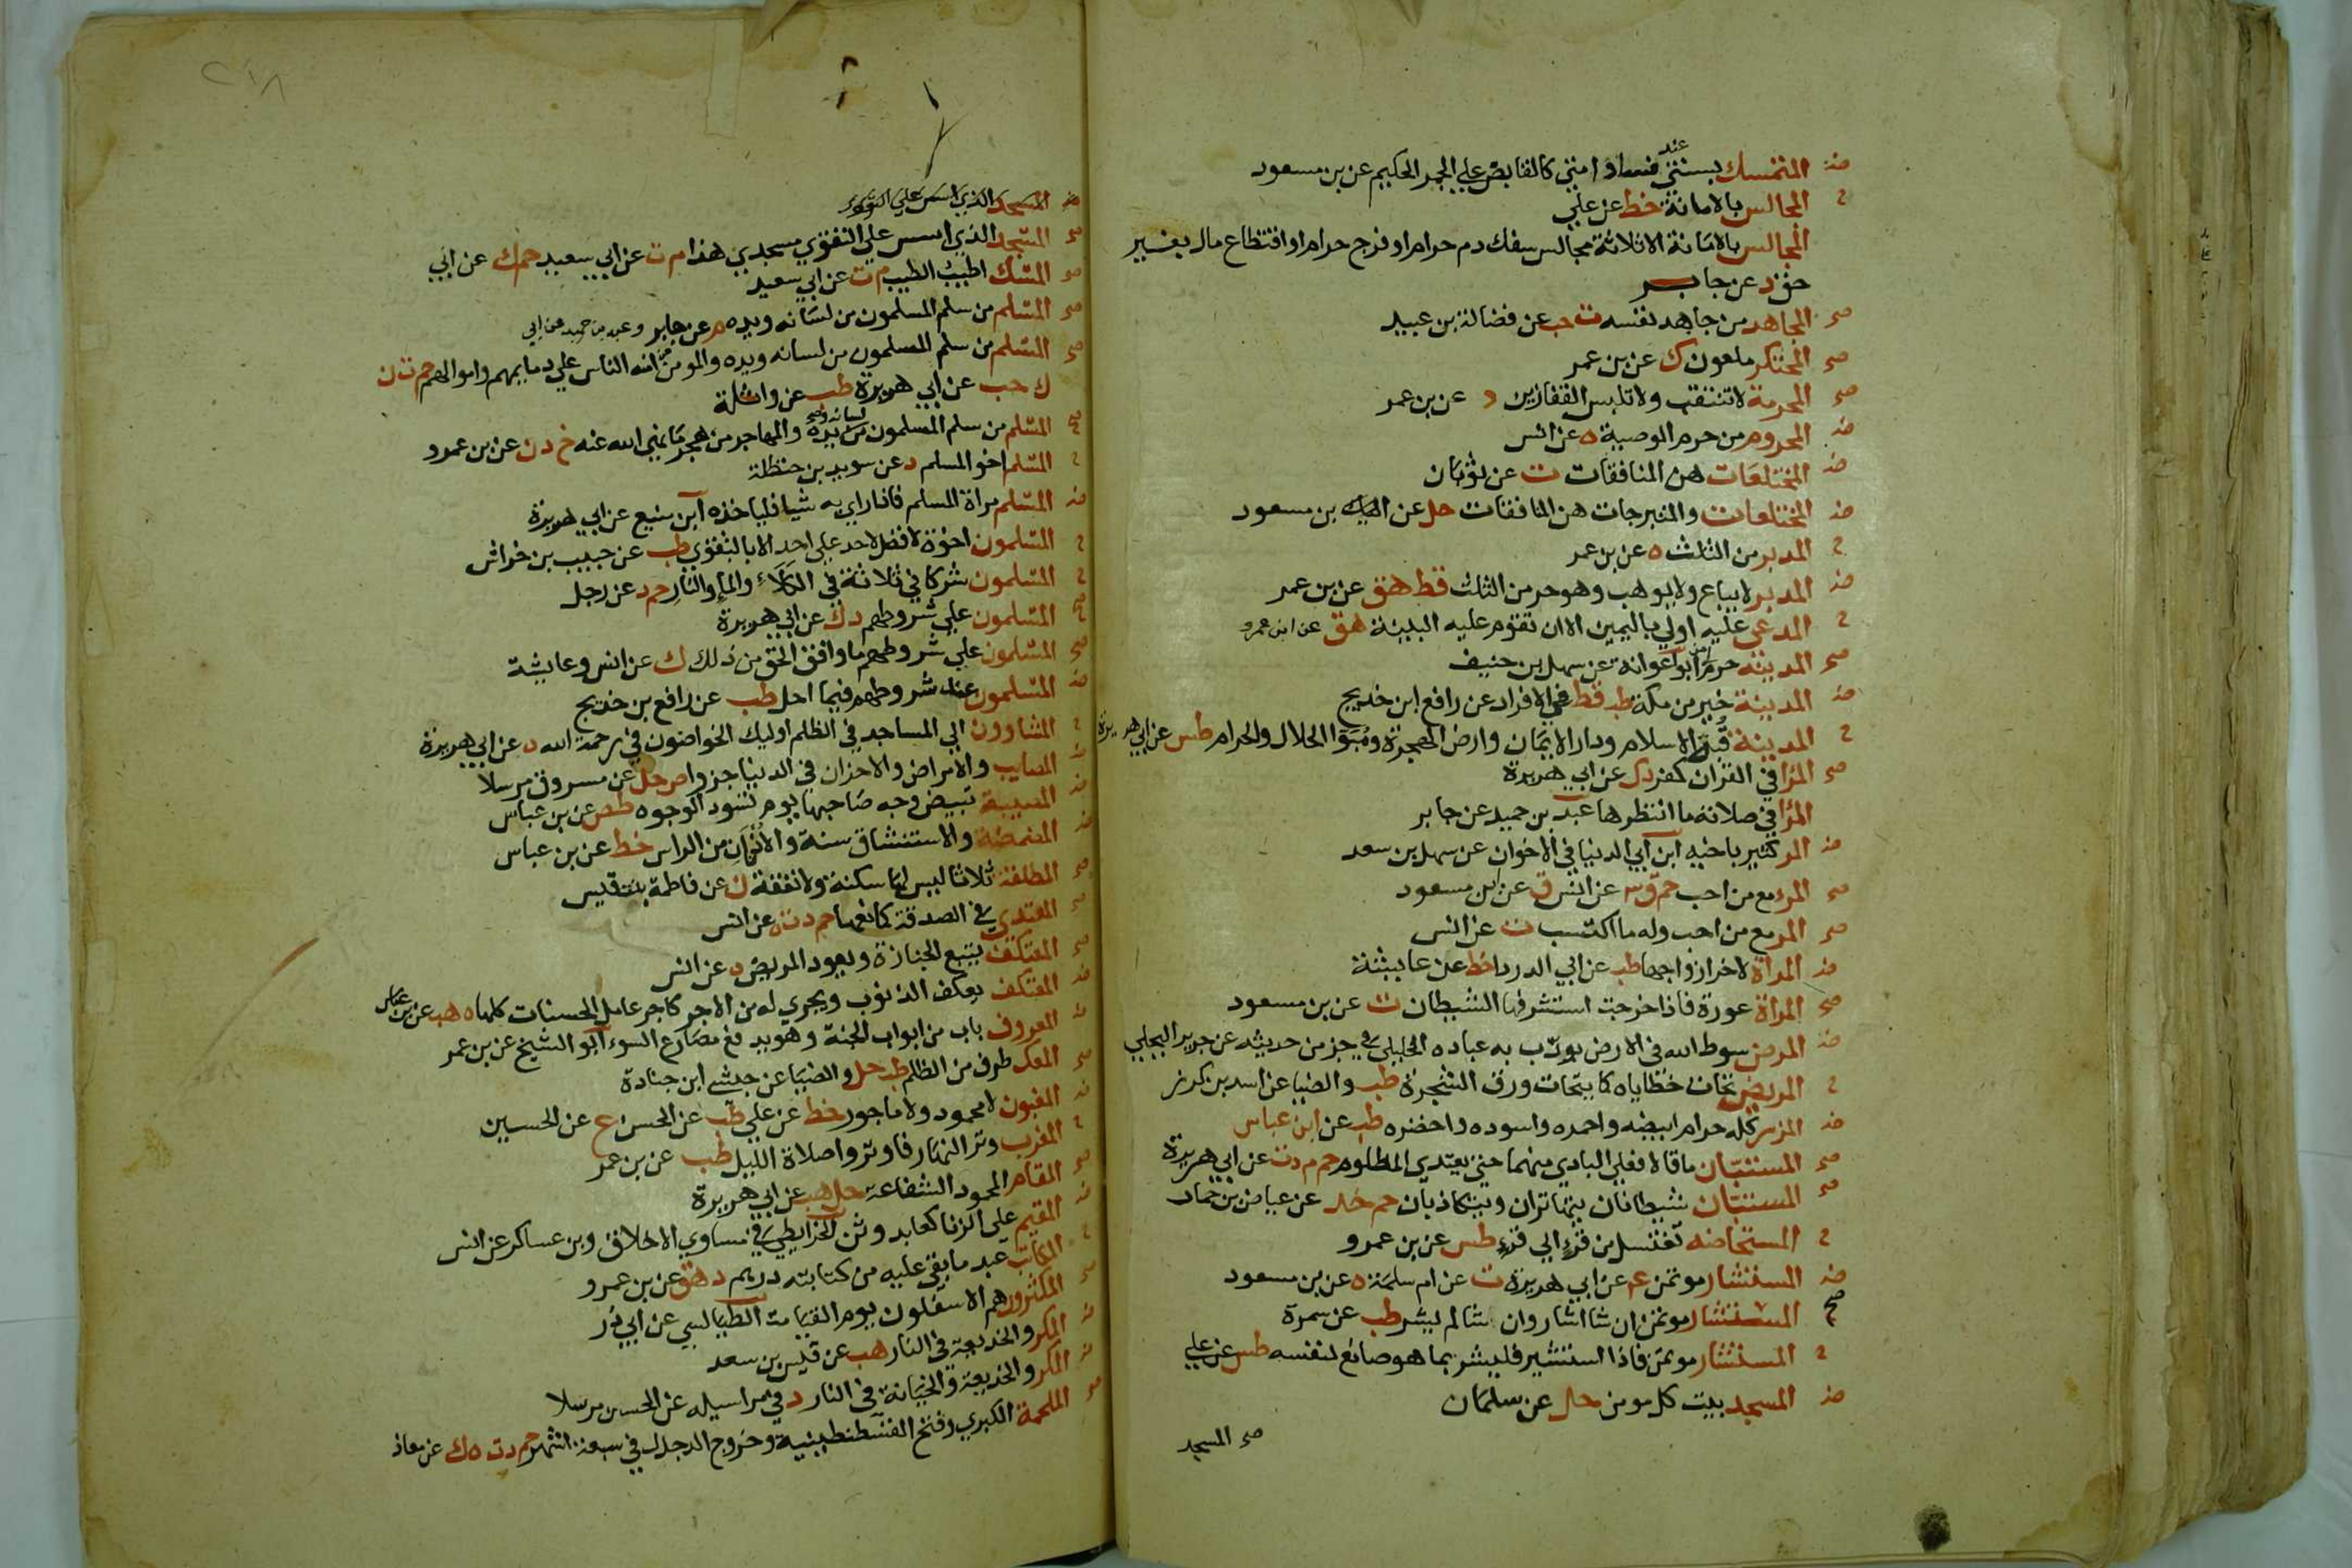 ض المتمسك بسنتي عند فساد امتي كالقابض على الجمر الحكيم عن بن مسعود
ح المجالس بالامانة خط عن علي
المجالس بالامانة الا ثلاثة مجالس سفك دم حرام او فرج حرام او اقتطاع مال بغير
حق د عن جابر
صح المجاهد من جاهد نفسه ت حب عن فضالة بن عبيد
صح المحتكر ملعون ك عن بن عمر
صح المحرمة لا تنتقب ولا تلبس القفازين د عن بن عمر
ض المحروم من حرم الوصية ه عن انس
ض المختلعات هن المنافقات ت عن ثوبان
ض المختلعات والمتبرجات هن المنافقات حل عن بن مسعود
ح المدبر من الثلث ه عن بن عمر
ض المدبر لا يباع ولا يوهب وهو حر من الثلث قط هق عن بن عمر
ح المدعى عليه اولي باليمين الا ان تقوم عليه البينة هق عن ابن عمرو
صح المدينة حرم امن ابو عوانة عن سهل بن حنيف
ض المدينة خير من مكة طب قط في الافراد عن رافع ابن خديج
ح المدينة قبة الاسلام ودار الايمان وارض الهجرة ومبوا الحلال والحرام طس عن ابي هريرة
صح المرا في القران كفر د ك عن ابي هريرة
المرا في صلاته ما انتظرها عبد بن حميد عن جابر
ض المر كثير باخيه ابن ابي الدنيا في الاخوان عن سهل بن سعد
صح المرء مع من احب حم ق عن انس ق عن ابن مسعود
صح المر مع من احب وله ما اكتسب ت عن انس
ض المراة لاخر ازواجها طب عن ابي الدردا خط عن عايشة
صح المراة عورة فاذا خرجت استشرفها الشيطان ت عن بن مسعود
ض المرض سوط الله في الارض يودب به عباده الخليلي في جز من حديثه عن جرير البجلي
ح المريض تحات خطاياه كما يتحات ورق الشجرة طب والضيا عن اسد بن كرز
ض المزر كله حرام ابيضه واحمره واسوده واخضره طب عن ابن عباس
صح المستبان ما قالا فعلي البادي منهما حتي يعتدي المظلوم حم م د ت عن ابي هريرة
صح المستبان شيطانان يتهاتران ويتكاذبان حم خد عن عياض بن حمار
ح المستحاضه تغتسل من قرء الي قرء طس عن بن عمرو
ض المستشار موتمن ع عن ابي هريرة ت عن ام سلمة ه عن بن مسعود
صح المستشار موتمن ان شا اشار وان شا لم يشر طب عن سمرة
ح المستشار موتمن فاذا استشير فليشر بما هو صانع لنفسه طس عن علي
ض المسجد بيت كل مومن حل عن سلمان
صح المسجد
٢١٨
المسجد الذي اسس علي التقوي
صح المسجد الذي اسس علي التقوي مسجدي هذا م ت عن ابي سعيد حم ك عن ابي
صح المسك اطيب الطيب م ت عن ابي سعيد
صح المسلم من سلم المسلمون من لسانه ويده م عن جابر
صح المسلم من سلم المسلمون من لسانه ويده والمومن من امنه الناس علي دمايهم واموالهم حم ت ن
ك حب عن ابي هريرة طب عن واثلة
صح المسلم من سلم المسلمون من لسانه ويده والمهاجر من هجر ما نهي الله عنه خ د ن عن بن عمرو
ح المسلم اخو المسلم د عن سويد بن حنظلة
ض المسلم مراة المسلم فاذا راي به شيا فلياخذه ابن منيع عن ابي هريرة
ح المسلمون اخوة لا فضل لاحد علي احد الا بالتقوي طب عن حبيب بن خراش
ح المسلمون شركا في ثلاثة في الكلاء والماء والنار حم د عن رجل
صح المسلمون علي شروطهم د ك عن ابي هريرة
صح المسلمون علي شروطهم ما وافق الحق من ذلك ك عن انس وعايشة
ض المسلمون عند شروطهم فيما احل طب عن رافع بن خديج
ح المشاوون الي المساجد في الظلم اوليك الخواضون في رحمة الله ه عن ابي هريرة
ض المصايب والامراض والاحزان في الدنيا جزوا ص حل عن مسروق مرسلا
ض المصيبة تبيض وجه صاحبها يوم تسود الوجوه طس عن بن عباس
ض المضمضة والاستنشاق سنة والاذنان من الراس خط عن بن عباس
صح المطلقة ثلاثا ليس لها سكنة ولا نفقة ن عن فاطمة بنت قيس
صح المعتدي في الصدقة كمانعها حم د ت ه عن انس
صح المعتكف يتبع الجنازة ويعود المريض ه عن انس
ض المعتكف يعكف الذنوب ويجري له من الاجر كاجر عامل الحسنات كلها ه هب عن بن عباس
ض المعروف باب من ابواب الجنة وهو يدفع مصارع السوء ابو الشيخ عن بن عمر
صح المعك طرف من الظلم طب حل والضيا عن حبشي ابن جنادة
ض المغبون لا محمود ولا ماجور خط عن علي طب عن الحسن ع عن الحسين
ح المغرب وتر النهار فاوتروا صلاة الليل طب عن بن عمر
صح المقام المحمود الشفاعة حل هب عن ابي هريرة
ض المقيم علي الزنا كعابد وثن الخرايطي في مساوي الاخلاق وبن عساكر عن انس
ح المكاتب عبد ما بقي عليه من كتابته درهم د هق عن بن عمرو
صح المكثرون هم الاسفلون يوم القيامة الطيالسي عن ابي ذر
ض المكر والخديعة في النار هب عن قيس بن سعد
ض المكر والخديعة والخيانة في النار د في مراسيله عن الحسن مرسلا
صح الملحمة الكبري وفتح القسطنطينية وخروج الدجال في سبعة اشهر حم د ت ه ك عن معاذ